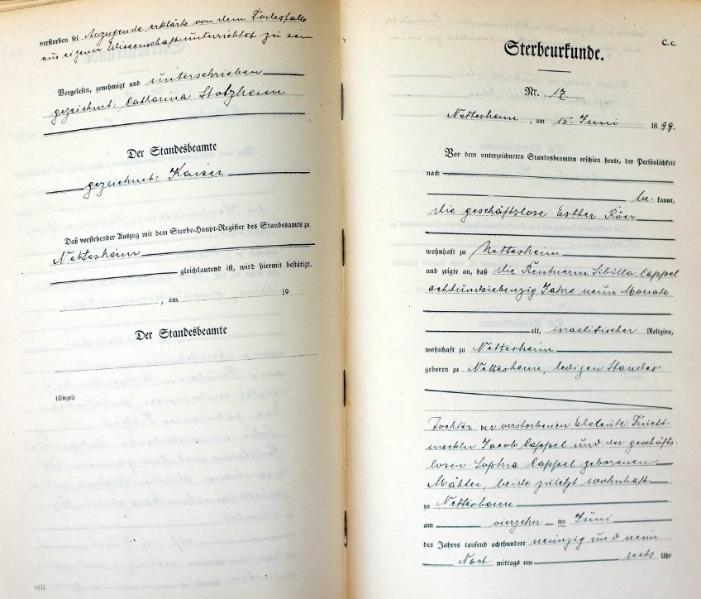 verstorben sei Anzeigende erklärte von dem Todesfalle
aus eigener Wissenschaft unterrichtet zu sein
Vorgelesen, genehmigt und unterschrieben
gezeichnet: Catharina Stotzheim
Der Standesbeamte
gezeichnet: Kaiser
Daß vorstehender Auszug mit dem Sterbe-Haupt-Register des Standesamts zu
Nettesheim
gleichlautend ist, wird hiermit bestätigt.
, am 19
Der Standesbeamte
(Siegel)
C.c.
Sterbeurkunde.
Nr. 17
Nettesheim, am 15. Juni 1899.
Vor dem unterzeichneten Standesbeamten erschien heute, der Persönlichkeit
nach
be- kannt,
die geschäftslose Esther Röer
wohnhaft zu Nettesheim
und zeigte an, daß die Rentnerin Sibilla Cappel
achtundsiebenzig Jahre neun Monate
alt, israelitischer Religion,
wohnhaft zu Nettesheim
geboren zu Nettesheim, ledigen Standes
Tochter der verstorbenen Eheleute: Frucht-
mackler Jacob Cappel und der geschäfts-
losen Sophia Cappel geborenen
Mähler, beide zuletzt wohnhaft
zu Nettesheim
am vierzehn ten Juni
des Jahres tausend achthundert neunzig und neun
Nach mittags um sechs Uhr